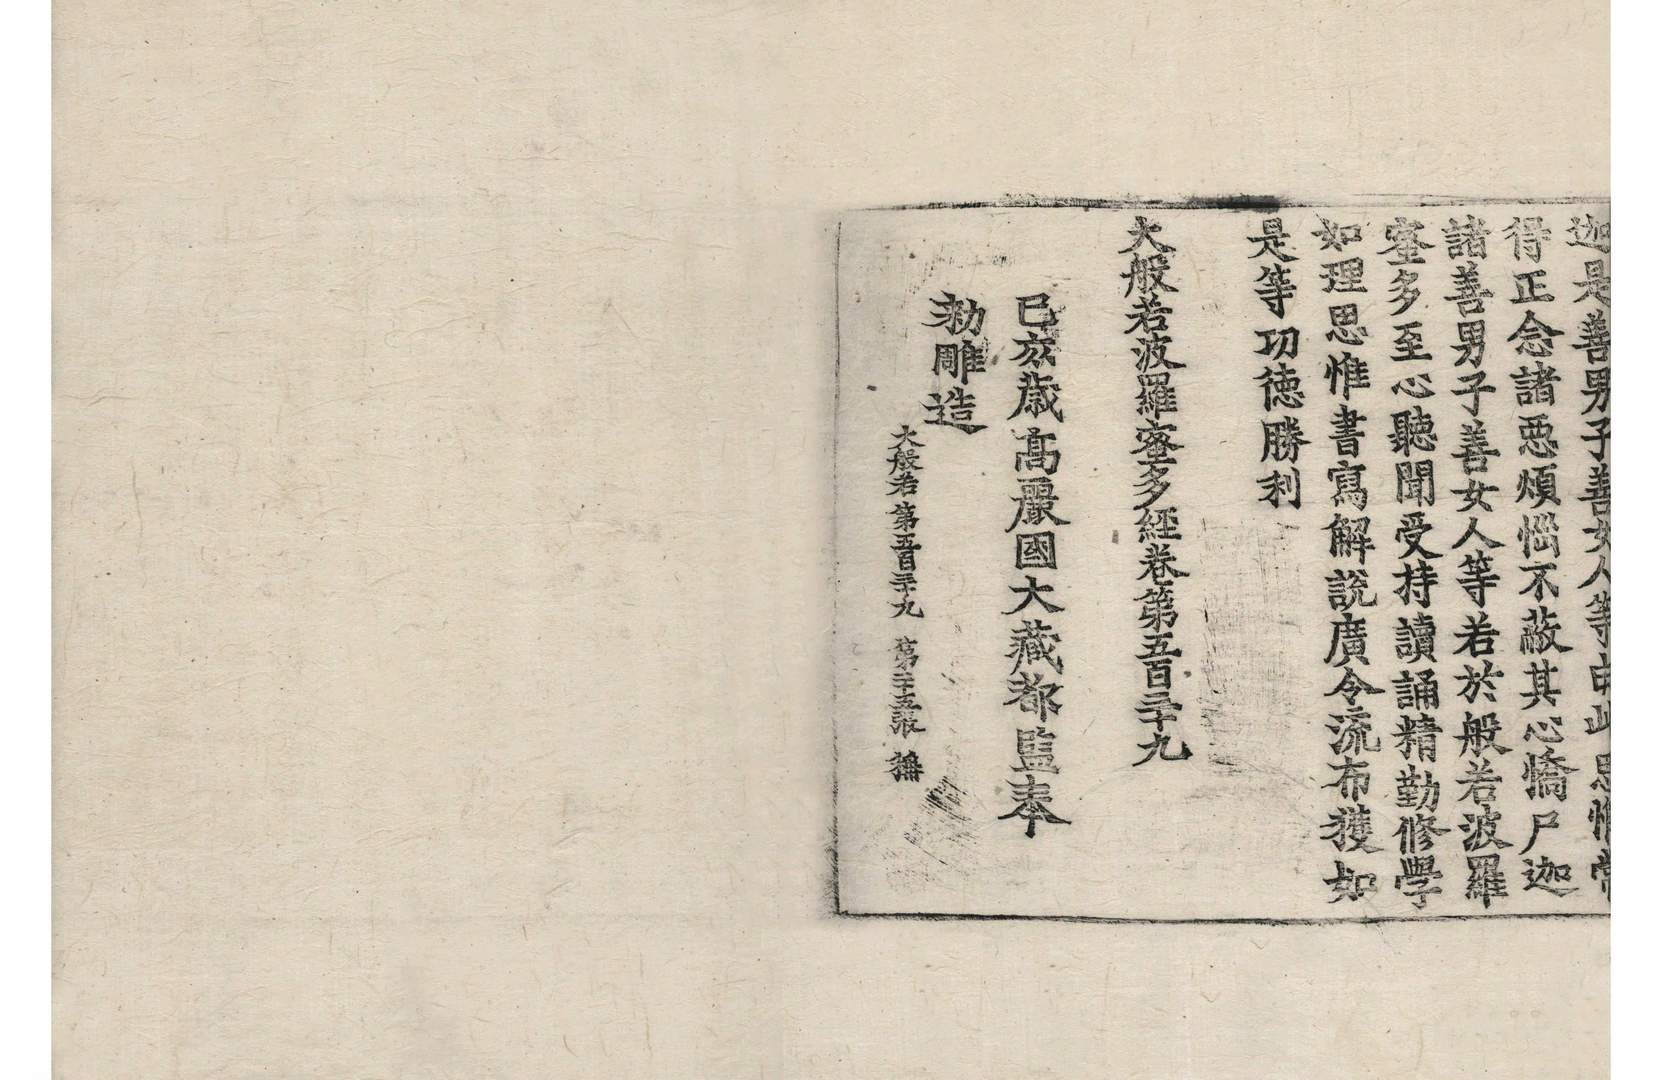 迦是善男子善女人等由此思惟常
得正念諸惡煩惱不蔽其心憍尸迦
諸善男子善女人等若於般若波羅
蜜多至心聽聞受持讀誦精勤修學
如理思惟書寫解說廣令流布獲如
是等功德勝利
大般若波羅蜜多經卷第五百三十九
己亥歲高麗國大藏都監奉
勑雕造
大般若第五百三十九 第二十五張 稱